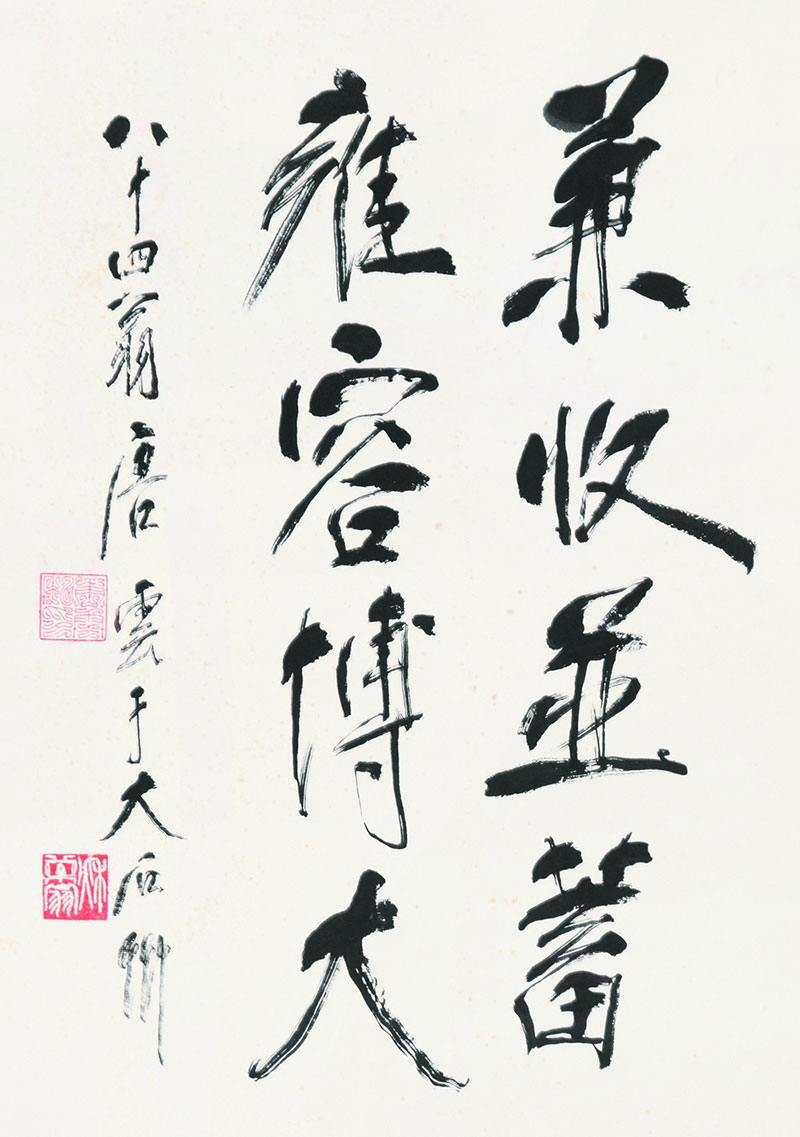 兼收並蓄
雍容博大
八十四翁唐雲于大石齋